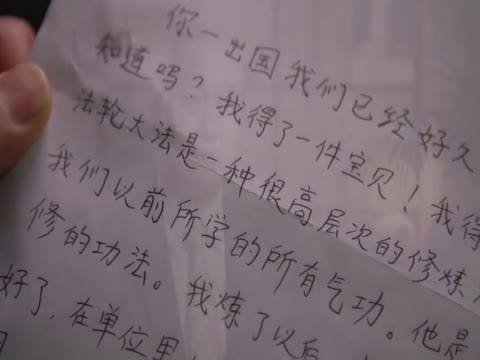 你一出国我们已经好久
知道吗？我得了一件宝贝！我得
法轮大法是一种很高层次的修炼
我们以前所学的所有气功。他是
修的功法。我炼了以后
好了，在单位里